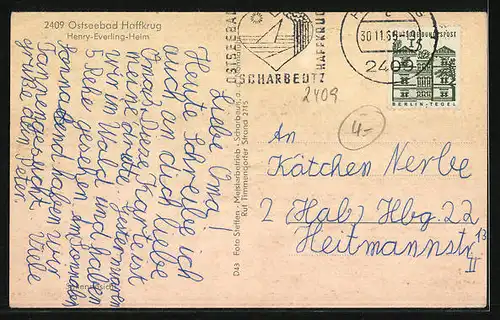 2409 Ostseebad Haffkrug
Henry-Everling-Heim
Liebe Oma!
Heute schreibe ich
auch an dich liebe
Oma. Diese Karte ist
meine dritte. Gestern waren
wir im Wald und haben
5 Rehe gesehen. Am Sonnabend
haben wir
Tannen gesucht. Viele
Grüße dein Peter.
D43 Foto Steffen - Meisterbetrieb - Scharbeutz
Ruf Timmendorfer Strand 2745
OSTSEEBAD
HAFFKRUG
SCHARBEUTZ
30.11.65
2409
DEUTSCHE BUNDESPOST
15
BERLIN-TEGEL
2409
4-
An
Kätchen Nerbe
2 (Hab) Hbg. 22
Heitmannstr 13
II